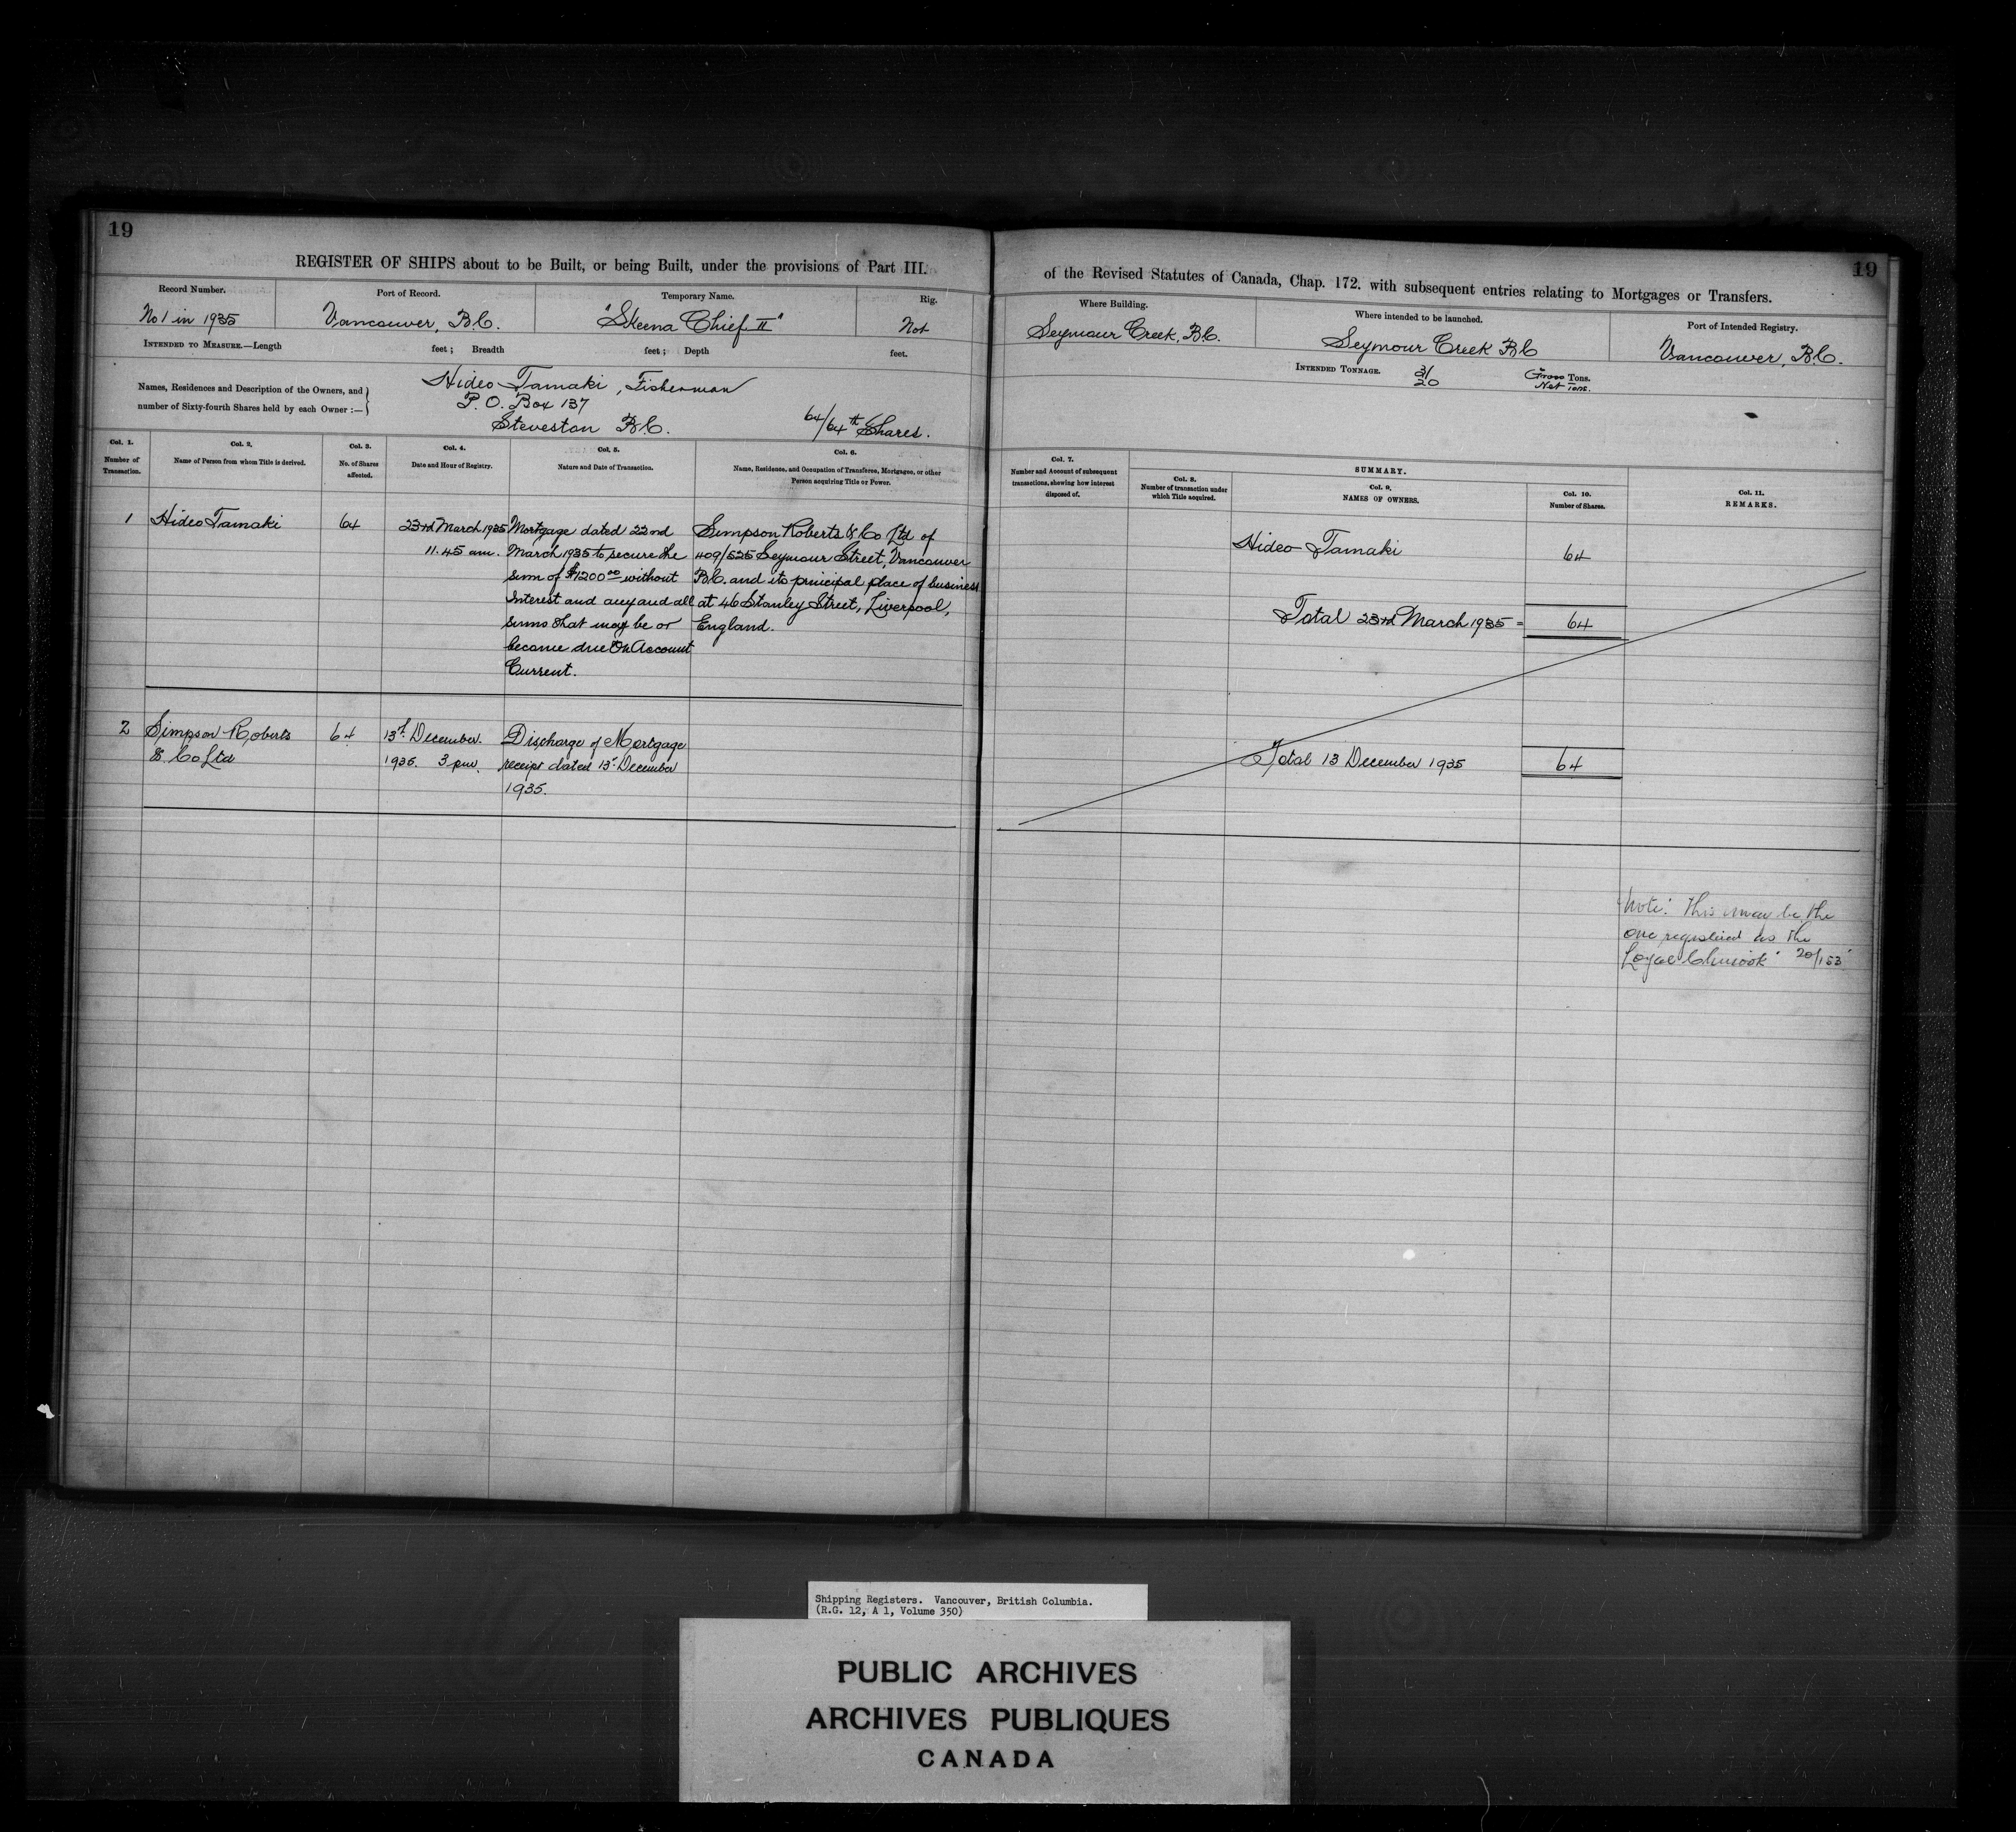 19
REGISTER OF SHIPS about to be Built, or being Built, under the provisions of Part III.
Record Number.
No 1 in 1935
Port of Record.
Vancouver, B.C.
Temporary Name.
"Skeena Chief II"
Rig.
Not
INTENDED TO MEASURE.—Length feet; Breadth feet; Depth feet.
Names, Residences and Description of the Owners, and
number of Sixty-fourth Shares held by each Owner :—
Hideo Tamaki, Fisherman
P.O. Box 137
Steveston B.C.
64/64th Shares.
Col. 1.
Number of
Transaction.
Col. 2.
Name of Person from whom Title is derived.
Col. 3.
No. of Shares
affected.
Col. 4.
Date and Hour of Registry.
Col. 5.
Nature and Date of Transaction.
Col. 6.
Name, Residence, and Occupation of Transferee, Mortgagee, or other
Person acquiring Title or Power.
1
Hideo Tamaki
64
23rd March 1935
11.45 am.
Mortgage dated 22nd
March 1935 to secure the
sum of $1200.00 without
interest and any and all
sums that may be or
become due On Account
Current.
Simpson Roberts & Co Ltd of
409/525 Seymour Street, Vancouver
B.C. and its principal place of business
at 46 Stanley Street, Liverpool,
England.
2
Simpson Roberts
& Co Ltd
64
13th December.
1935. 3 pm.
Discharge of Mortgage
receipt dated 13th December
1935.
19
of the Revised Statutes of Canada, Chap. 172. with subsequent entries relating to Mortgages or Transfers.
Where Building.
Seymour Creek, B.C.
Where intended to be launched.
Seymour Creek B.C
Port of Intended Registry.
Vancouver, B.C.
INTENDED TONNAGE.
31
20
Gross Tons.
Net Tons.
Col. 7.
Number and Account of subsequent
transactions, shewing how interest
disposed of.
SUMMARY.
Col. 8.
Number of transaction under
which Title acquired.
Col. 9.
NAMES OF OWNERS.
Col. 10.
Number of Shares.
Col. 11.
REMARKS.
Hideo Tamaki
64
Total 23rd March 1935 =
64
Total 13 December 1935
64
Note: This may be the
one registered as the
"Loyal Chinook" 20/153
Shipping Registers. Vancouver, British Columbia.
(R.G. 12, A 1, Volume 350)
PUBLIC ARCHIVES
ARCHIVES PUBLIQUES
CANADA